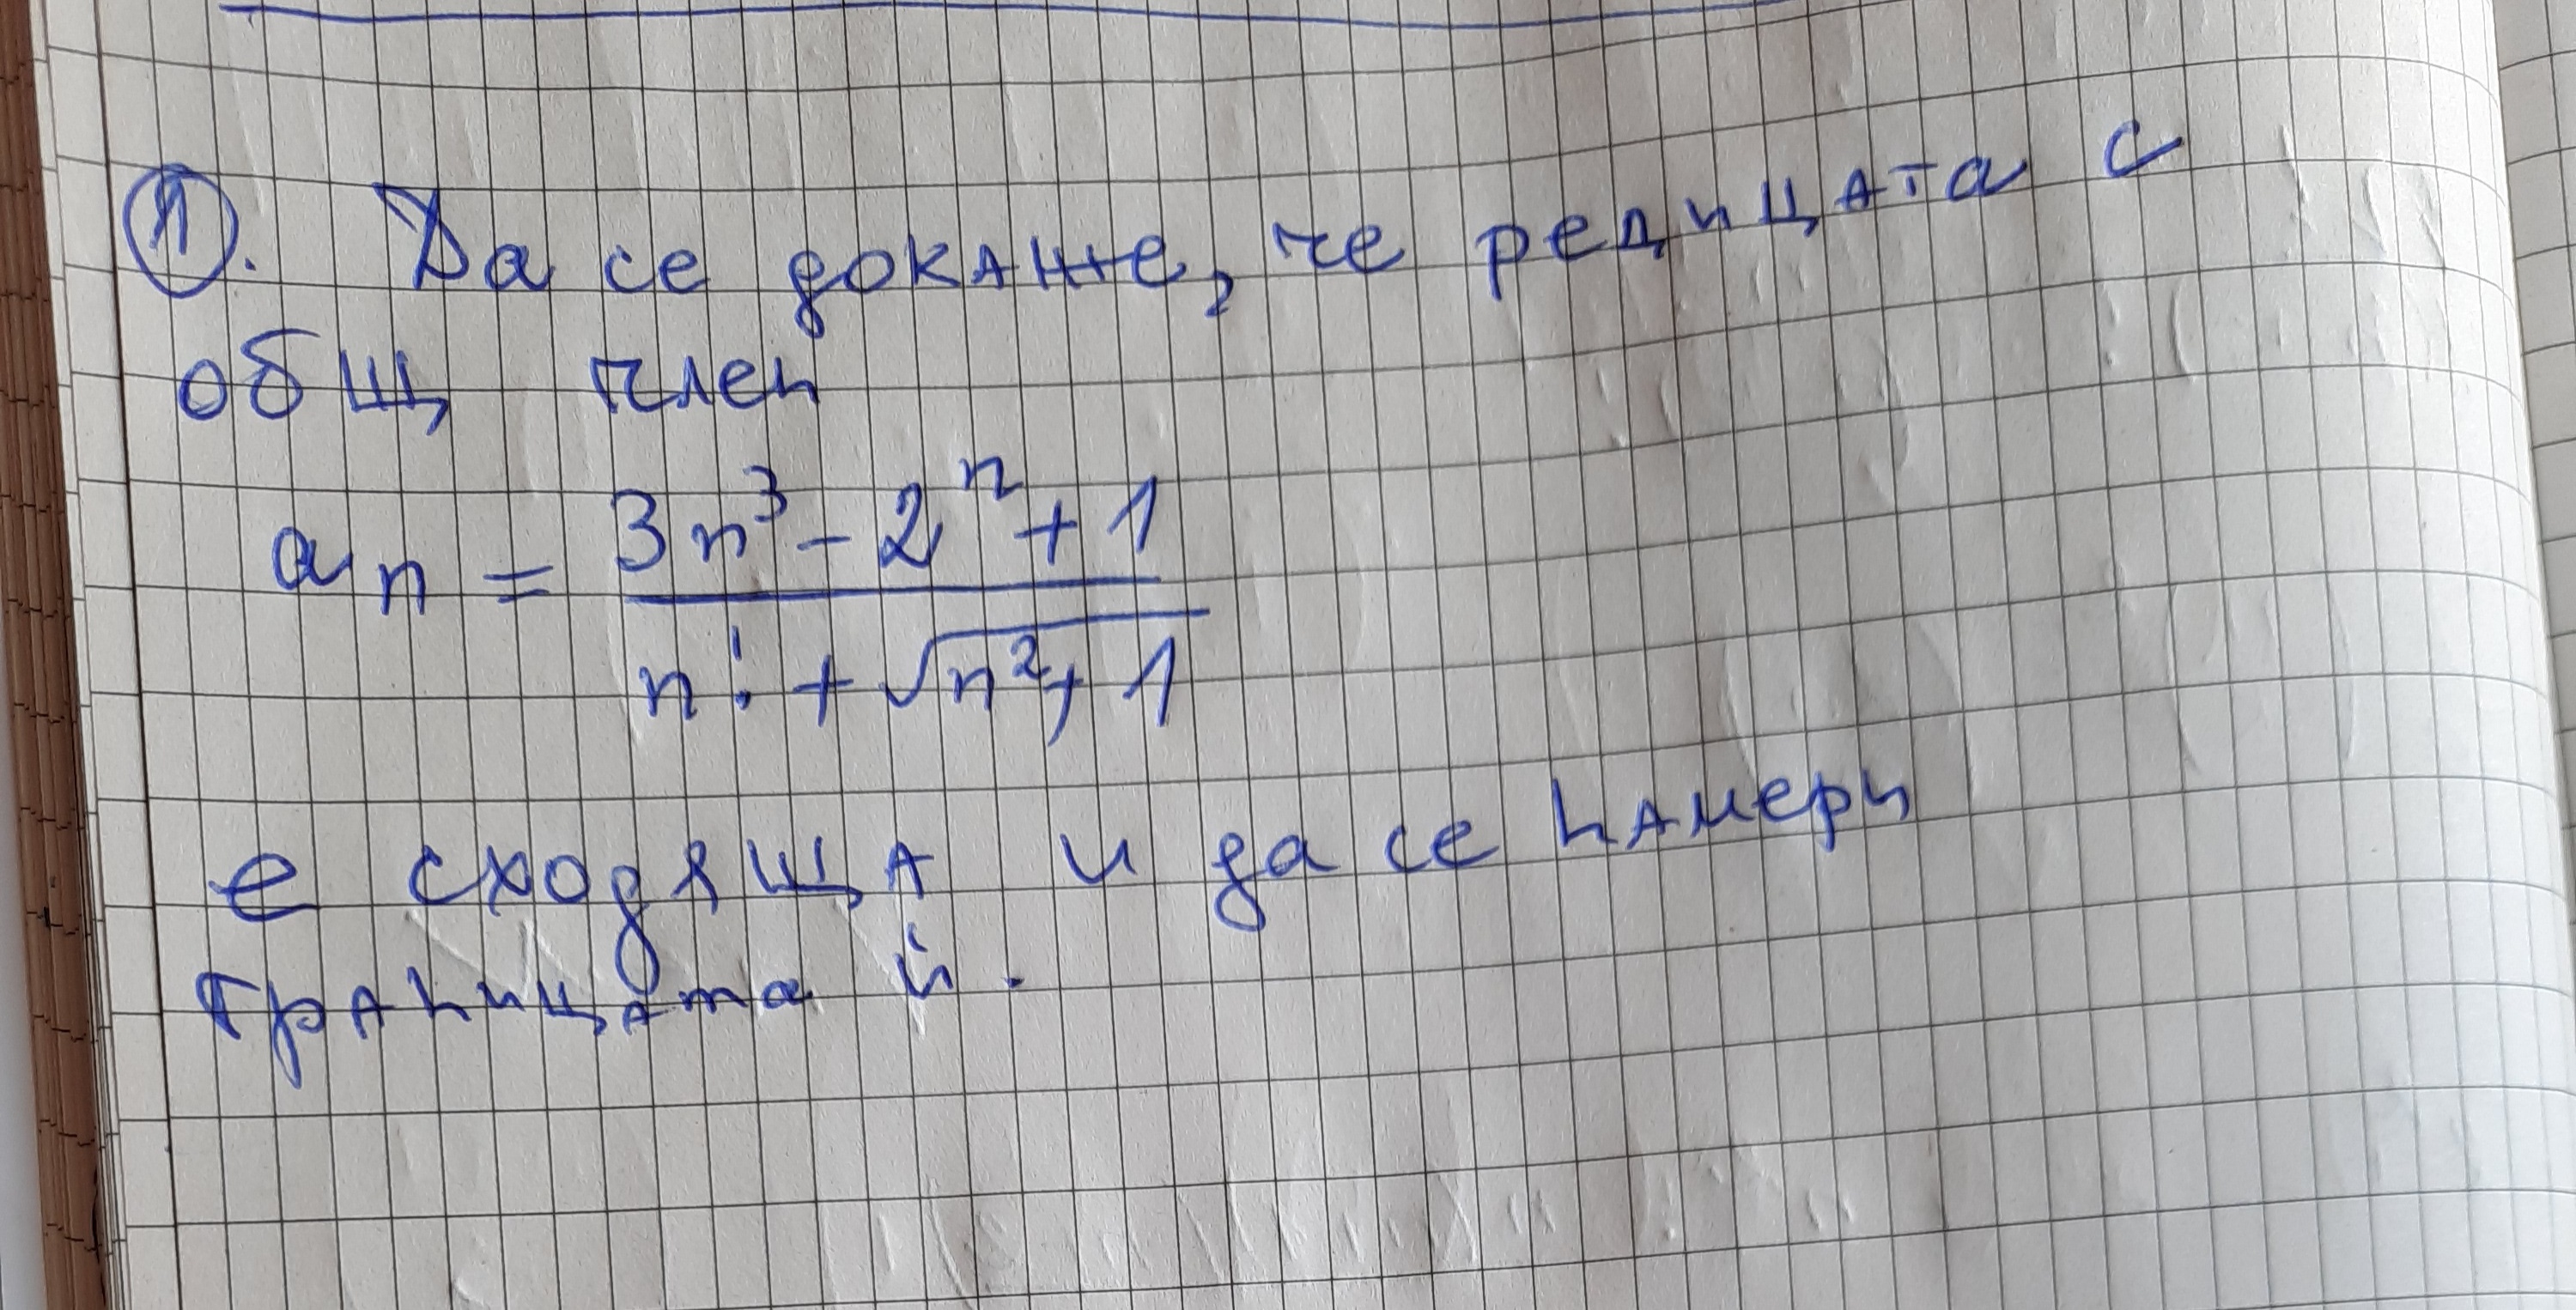 ①. Да се докаже, че редицата с
общ член
aₙ = (3n³ - 2ⁿ + 1) / (n! + √(n² + 1))
е сходяща и да се намери
границата й.